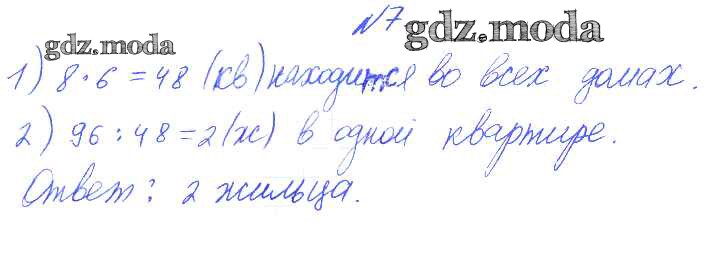 №7 gdz.moda
gdz.moda
1) 8·6=48 (кв) находится во всех домах.
2) 96:48=2(ж) в одной квартире.
Ответ: 2 жильца.